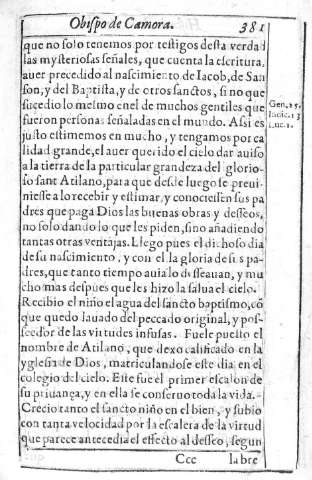 Obispo de Çamora. 381
que no solo tenemos por testigos desta verdad
las mysteriosas señales, que cuenta la escritura,
auer precedido al nascimiento de Iacob, de San
son, y del Baptista, y de otros sanctos, si no que
sucedio lo mesmo en el de muchos gentiles que
fueron personas señaladas en el mundo. Assi es
justo estimemos en mucho, y tengamos por ca
lidad grande, el auer querido el cielo dar auiso
a la tierra de la particular grandeza del glorio-
so sant Atilano, para que desde luego se preui-
niesse a lo recebir y estimar, y conociessen sus pa
dres que paga Dios las buenas obras y desseos,
no solo dando lo que les piden, sino añadiendo
tantas otras ventajas. Llego pues el dichoso dia
de su nascimiento, y con el la gloria de sus pa-
dres, que tanto tiempo auia lo desseauan, y mu
cho mas despues que les hizo la salua el cielo.
Recibio el niño el agua del sancto baptismo, cõ
que quedo lauado del peccado original, y pos-
seedor de las virtudes infusas. Fuele puesto el
nombre de Atilano, que dexo calificado en la
yglesia de Dios, matriculandose este dia en el
colegio del cielo. Este fue el primer escalon de
su priuança, y en ella se conseruo toda la vida.
Crecio tanto el sancto niño en el bien, y subio
con tanta velocidad por la escalera de la virtud
que parece antecedia el effecto al desseo, segun
Ccc la bre
Gen. 25.
Iudic. 13
Luc. 1.